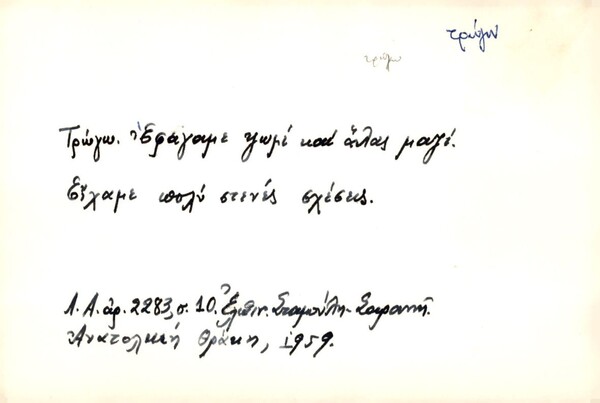 τρώγω
τρώγω
Τρώγω. Ἐφάγαμε ψωμί καί ἅλας μαζί.
Εἴχαμε πολύ στενές σχέσεις.
Λ. Α. ἀρ. 2283, σ. 10. Ἐλπιν. Σταμούλη-Σαραντῆ.
Ἀνατολική Θράκη, 1959.